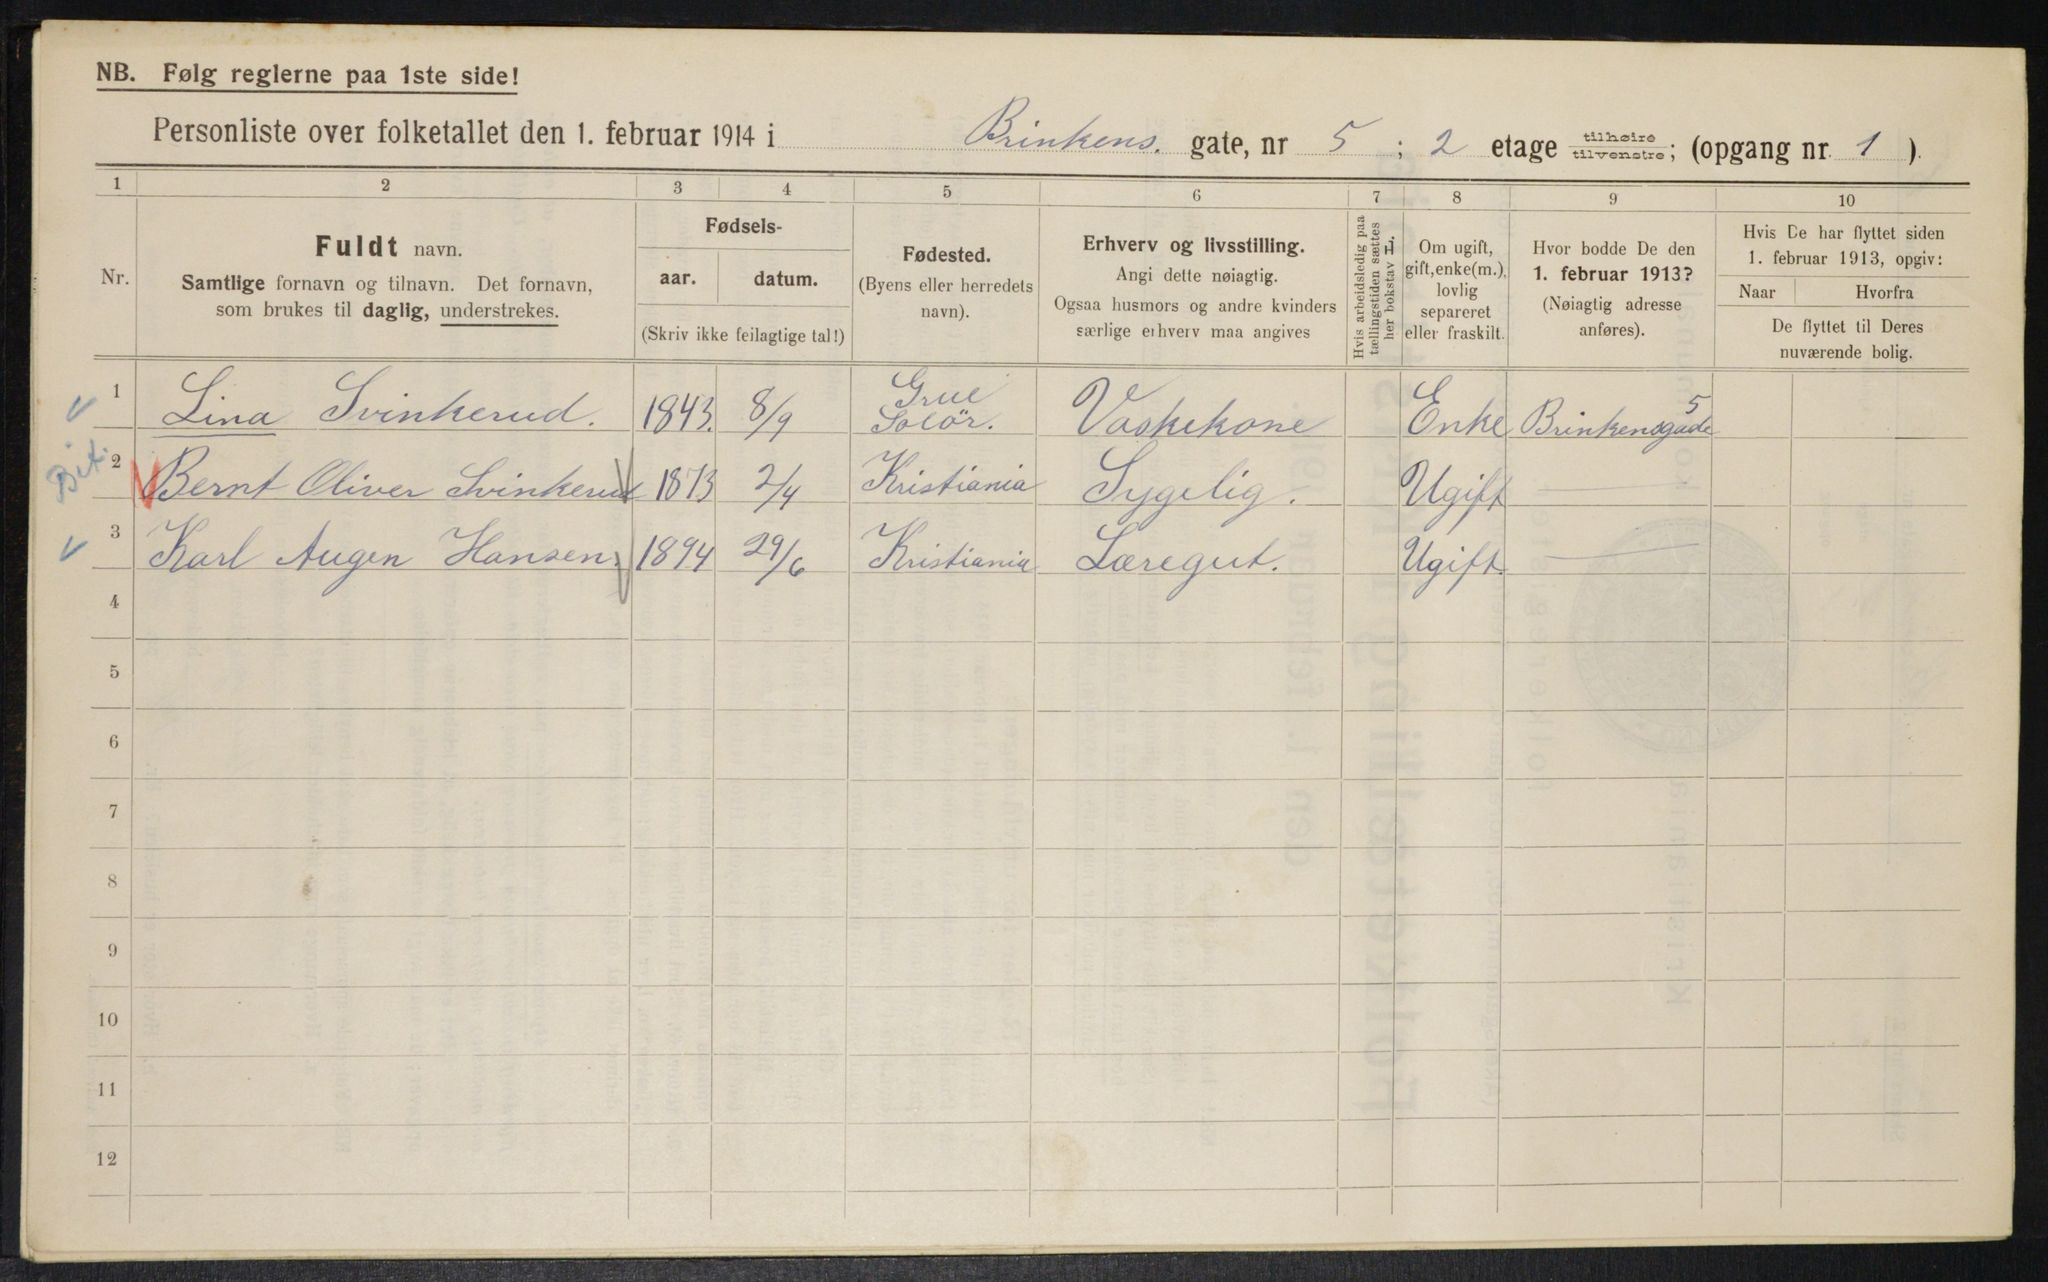 NB. Følg reglerne paa 1ste side!
Personliste over folketallet den 1. februar 1914 i Brinkens. gate, nr 5 ; 2 etage tilhøire / tilvenstre; (opgang nr. 1 ).
1 2 3 4 5 6 7 8 9 10
Nr.
Fuldt navn.
Samtlige fornavn og tilnavn. Det fornavn,
som brukes til daglig, understrekes.
Fødsels-
aar. datum.
(Skriv ikke feilagtige tal!)
Fødested.
(Byens eller herredets
navn).
Erhverv og livsstilling.
Angi dette nøiagtig.
Ogsaa husmors og andre kvinders
særlige erhverv maa angives
Hvis arbeidsledig paa
tællingstiden sættes
her bokstav L.
Om ugift,
gift, enke(m.),
lovlig
separeret
eller fraskilt.
Hvor bodde De den
1. februar 1913?
(Nøiagtig adresse
anføres).
Hvis De har flyttet siden
1. februar 1913, opgiv:
Naar Hvorfra
De flyttet til Deres
nuværende bolig.
1 Lina Svinkerud. 1843. 8/9 Grue Solör. Vaskekone Enke Brinkensgade 5
2 Bernt Oliver Svinkerud 1873 2/4 Kristiania Sygelig. Ugift —
3 Karl Augen Hansen. 1894 29/6 Kristiania Læregut. Ugift. —
4
5
6
7
8
9
10
11
12